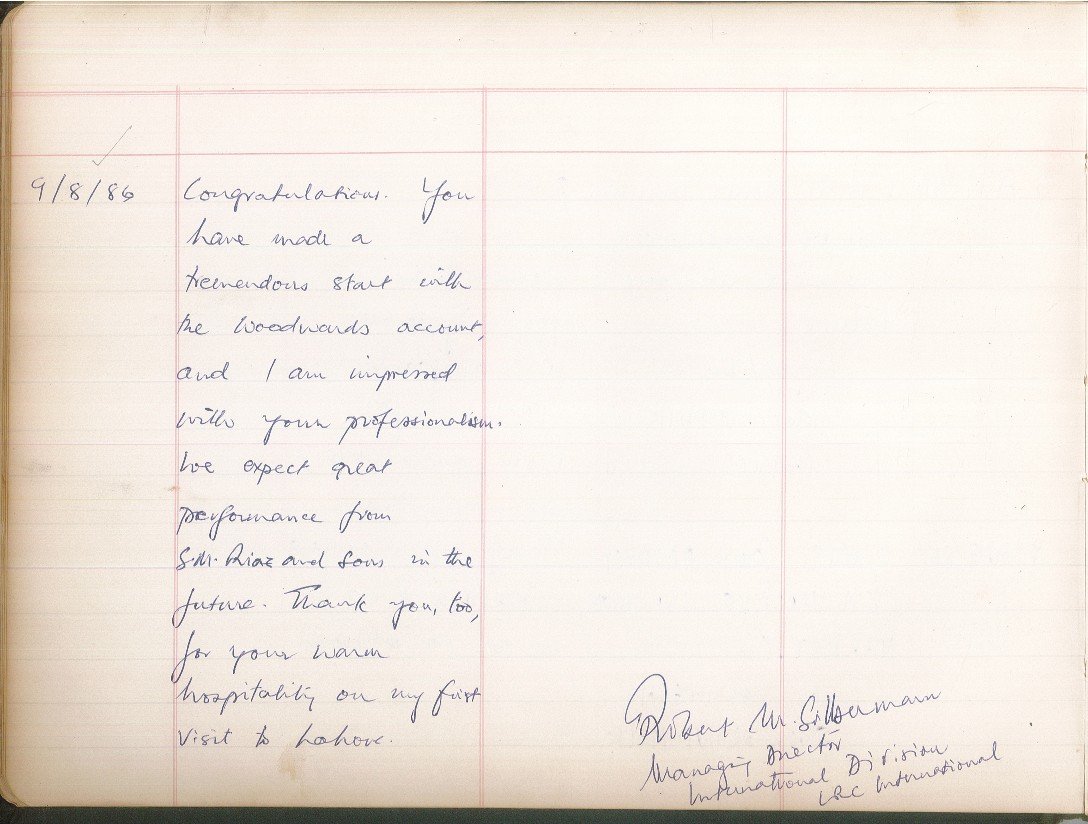 9/8/86
Congratulations. You
have made a
tremendous start with
the Woodwards account,
and I am impressed
with your professionalism.
We expect great
performance from
S.M. Riaz and Sons in the
future. Thank you, too,
for your warm
hospitality on my first
visit to Lahore.
Robert M. Silbermann
Managing Director
International Division
LRC International